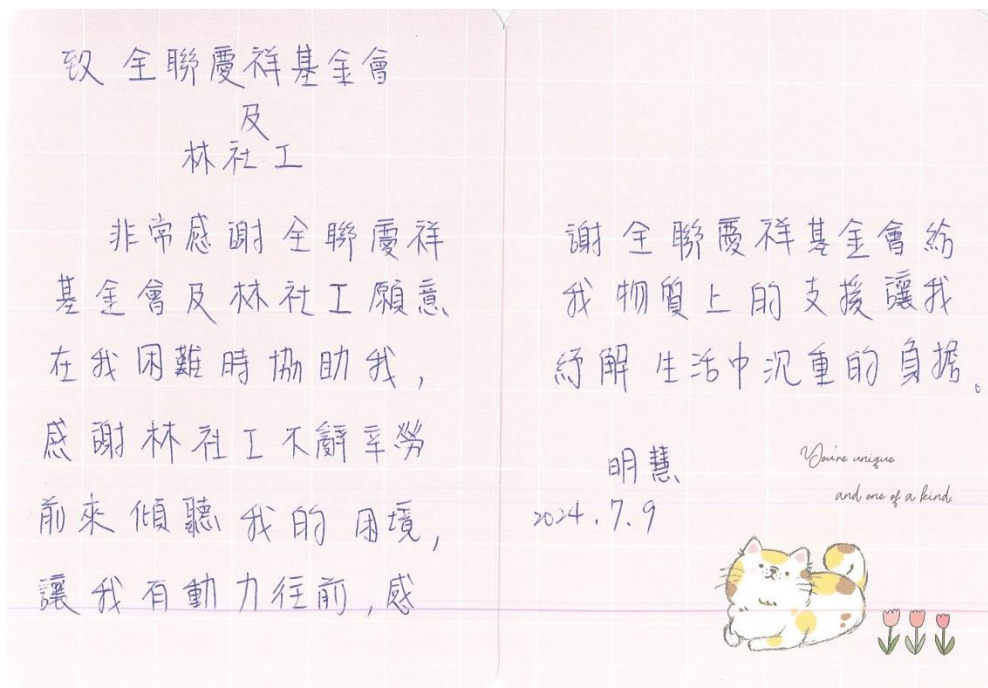 致 全聯慶祥基金會
及
林社工
非常感謝全聯慶祥
基金會及林社工願意
在我困難時協助我,
感謝林社工不辭辛勞
前來傾聽我的困境,
讓我有動力往前,感
謝全聯慶祥基金會給
我物質上的支援讓我
紓解生活中沉重的負擔。
明慧
2024.7.9
You're unique
and one of a kind.